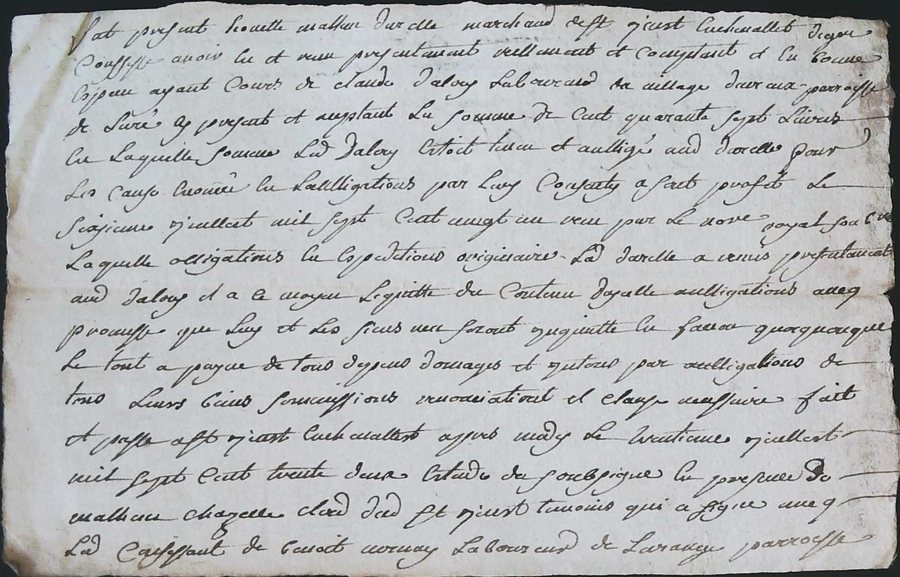 fut présent honette mathieu durelle marchand de St just en chevallet lequel
Confesse avoir eu et reçu présentement réellement et comptant et en bonne
Espece ayant Cours de claude dalory Laboureur du village parroisse
de Luré cy présent et aceptant La somme de Cent quarante sept Livres
En Laquelle somme Led dalory Estoit tenu et aubligé aud durelle pour
Les Cause Enoncé En Laubligations par Luy Consenty a fait profit Le
sixieme juillet mil sept Cent vingt un reçu par Le nore royal
Laquelle obligations En Expeditions originaire Led durelle a remis présentement
aud dalory et a ce moyen Lequitte du Contenu dycelle aubligations aveq
promesse que Luy et Les siens nen seront En façon quequonque
Le tout a payne de tous depens domages et par aubligations de
tous Leurs biens soumissions renonciations et clause nessaire fait
et passé a St just En chevallet appres midy Le trantieme juillest
mil sept Cent trente deux Estude du soubsigne En presence de
mathieu chazelle clerc dud St just temoins qui a signe aveq
Led Confessant de benoit Laboureur de parroisse